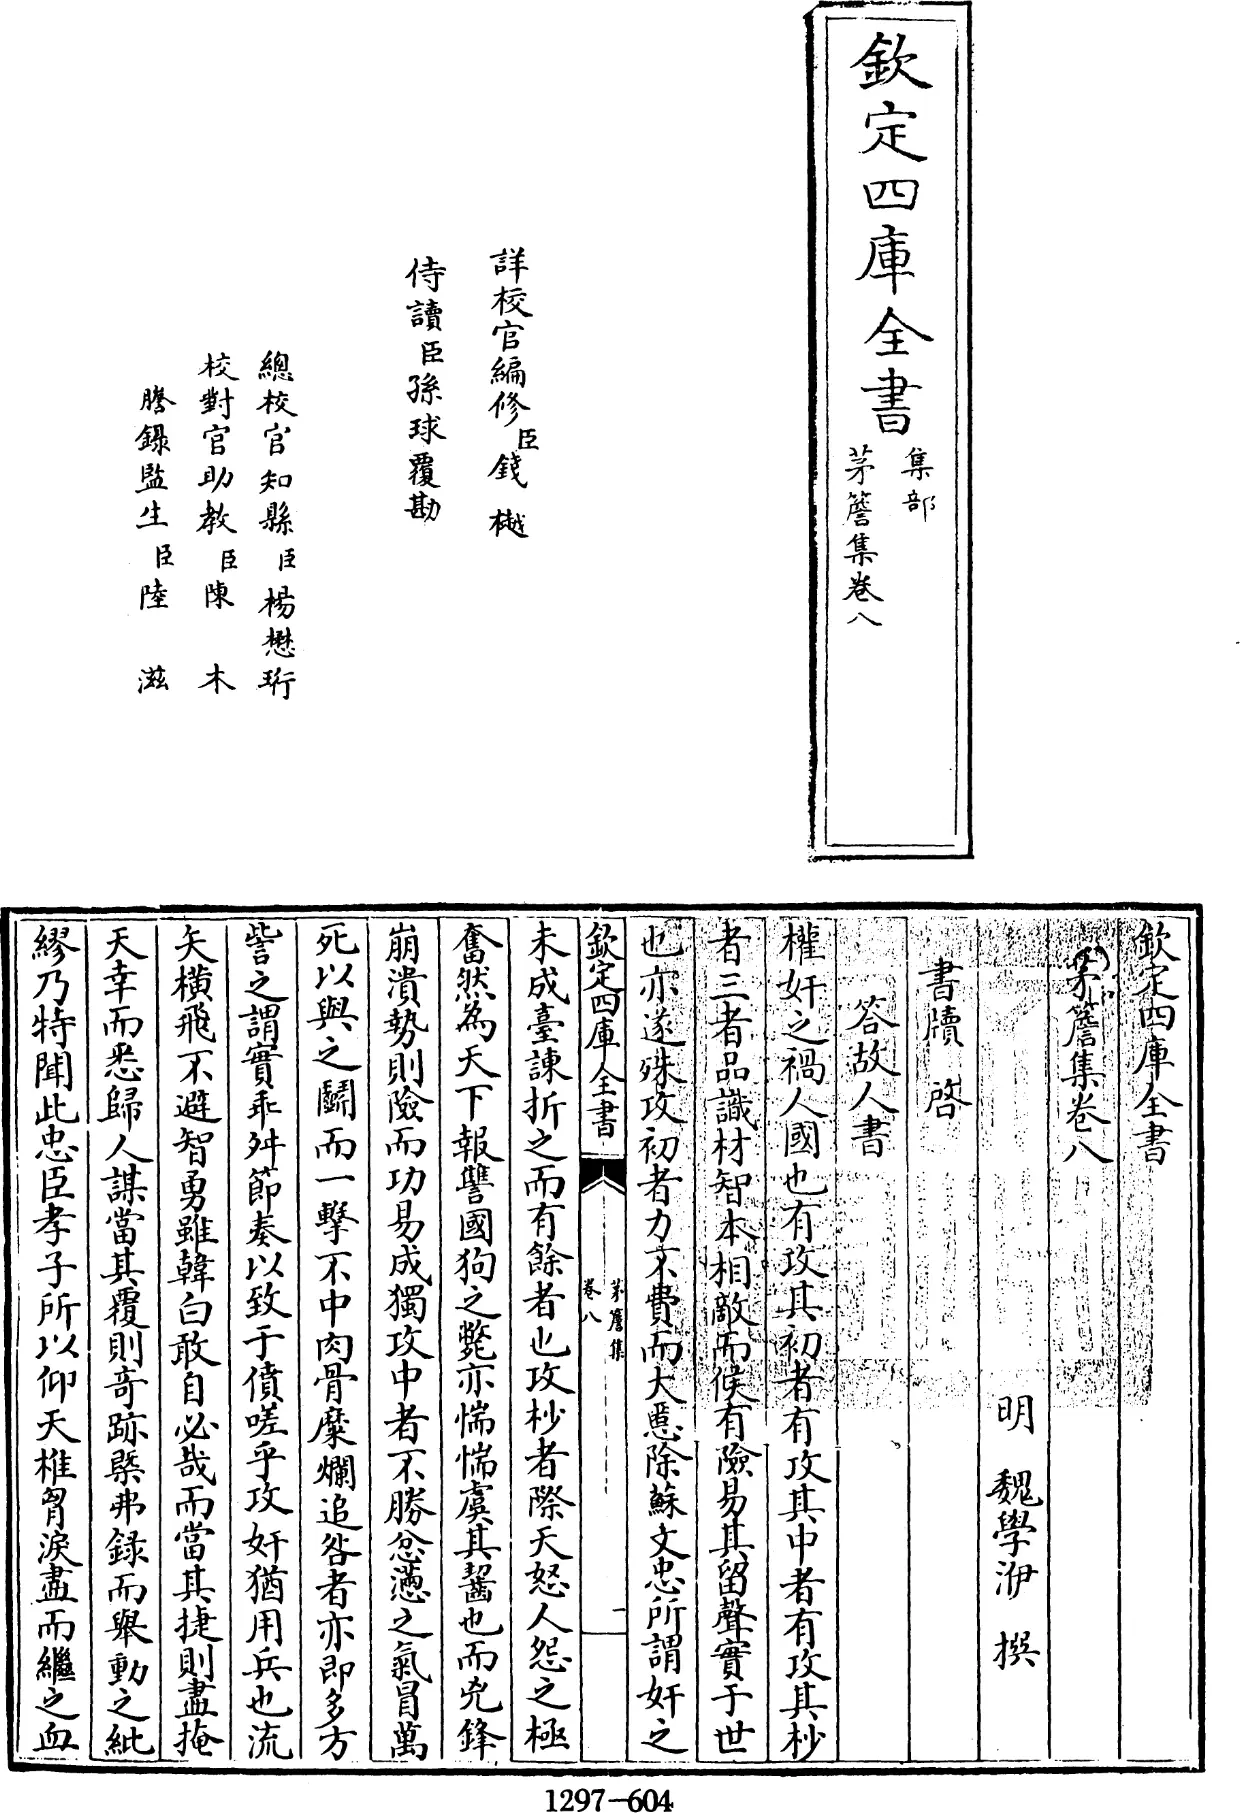 欽定四庫全書
集部
茅簷集卷八
詳校官編修臣錢樾
侍讀臣孫球覆勘
總校官知縣臣楊懋珩
校對官助教臣陳木
謄錄監生臣陸滋
欽定四庫全書
茅簷集卷八
明 魏學洢 撰
書牘 啓
答故人書
權奸之禍人國也有攻其初者有攻其中者有攻其杪
者三者品識材智本相敵而候有險易其留聲實于世
也亦遂殊攻初者力不費而大憝除蘇文忠所謂奸之
欽定四庫全書
茅簷集
卷八
一
未成臺諫折之而有餘者也攻杪者際天怒人怨之極
奮然為天下報讐國狗之斃亦惴惴虞其齧也而兇鋒
崩潰勢則險而功易成獨攻中者不勝忿懣之氣冒萬
死以與之鬭而一擊不中肉骨糜爛追咎者亦即多方
訾之謂實乖舛節奏以致于僨嗟乎攻奸猶用兵也流
矢橫飛不避智勇雖韓白敢自必哉而當其捷則盡掩
天幸而悉歸人謀當其覆則竒跡槩弗録而舉動之紕
繆乃特聞此忠臣孝子所以仰天椎胷淚盡而繼之血
1297-604